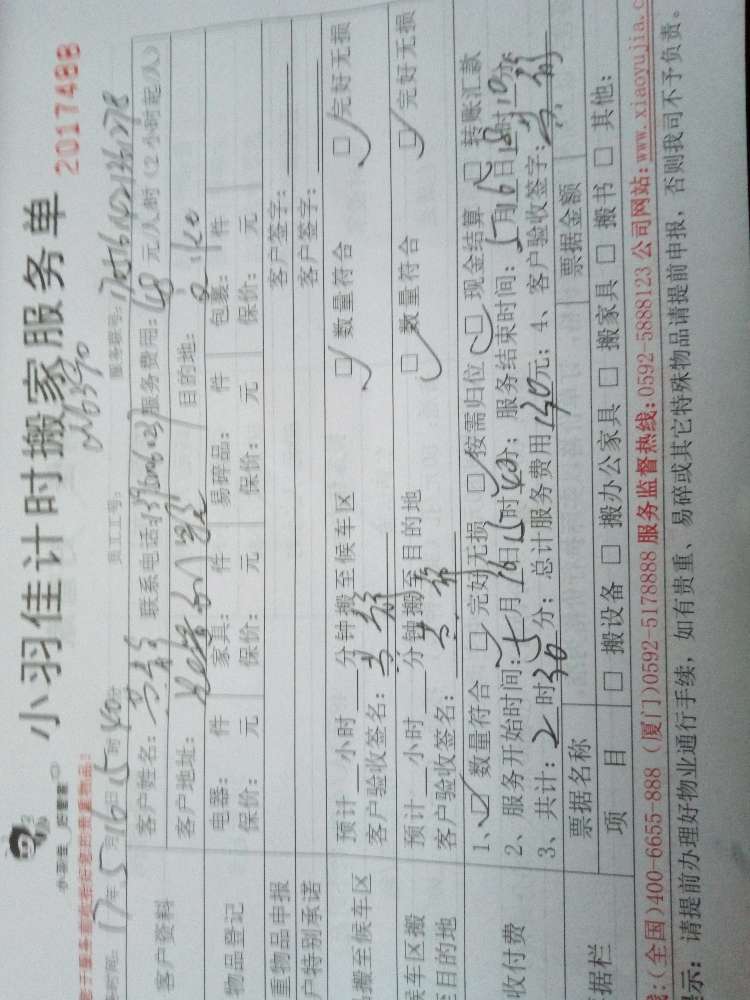 小羽佳计时搬家服务单 2017488
小羽佳 好管家
时间：17年5月16日15时40分 员工工号： No370 服务账号：
客户资料 客户姓名： 联系电话： 服务费用：48元/人/时（2小时起/人）
客户地址： 目的地：
物品登记 电器： 件 家具： 件 易碎品： 件 包裹： 件
保价： 元 保价： 元 保价： 元 保价： 元
重物品申报 客户签字：
户特别承诺 客户签字：
搬至候车区 预计 小时 分钟搬至候车区 □数量符合 □完好无损
客户验收签名：
候车区搬 预计 小时 分钟搬至目的地 □数量符合 □完好无损
至目的地 客户验收签名：
收付费 1、□数量符合 □完好无损 □按需归位 □现金结算 □转账汇款
2、服务开始时间：5月16日15时40分；服务结束时间：5月16日18时10分
3、共计：2时30分；总计服务费用 元；4、客户验收签字：
据栏 票据名称 票据金额
项 目 □搬设备 □搬办公家具 □搬家具 □搬书 □其他：
：(全国)400-6655-888 (厦门)0592-5178888 服务监督热线：0592-5888123 公司网站：www.xiaoyujia.c
示：请提前办理好物业通行手续，如有贵重、易碎或其它特殊物品请提前申报，否则我司不予负责。